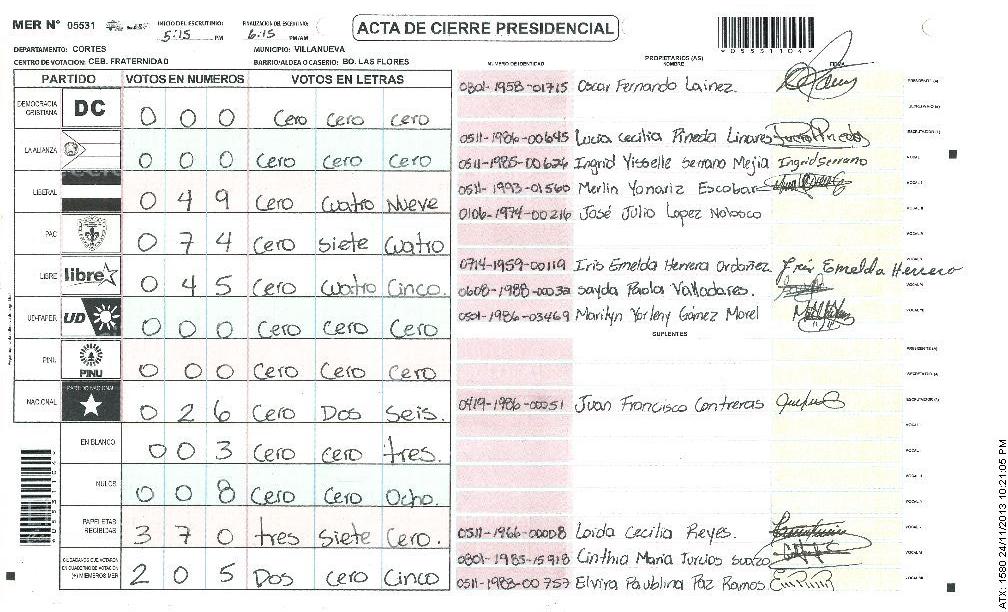 MER N° 05531
INICIO DEL ESCRUTINIO:
5:15 PM
FINALIZACION DEL ESCRUTINIO:
6:15 PM/AM
ACTA DE CIERRE PRESIDENCIAL
05531104
DEPARTAMENTO: CORTES
MUNICIPIO: VILLANUEVA
CENTRO DE VOTACION: CEB. FRATERNIDAD
BARRIO/ALDEA O CASERIO: BO. LAS FLORES
PARTIDO VOTOS EN NUMEROS VOTOS EN LETRAS
DEMOCRACIA CRISTIANA DC 0 0 0 Cero Cero Cero
LA ALIANZA 0 0 0 Cero Cero Cero
LIBERAL 0 4 9 Cero Cuatro Nueve
PAC 0 7 4 Cero Siete Cuatro
LIBRE libre 0 4 5 Cero Cuatro Cinco.
UD-FAPER UD 0 0 0 Cero Cero Cero
PINU PINU 0 0 0 Cero Cero Cero
NACIONAL PARTIDO NACIONAL 0 2 6 Cero Dos Seis.
EN BLANCO 0 0 3 Cero Cero tres.
NULOS 0 0 8 Cero Cero Ocho.
PAPELETAS RECIBIDAS 3 7 0 tres Siete Cero.
CIUDADANOS QUE VOTARON EN CUADERNO DE VOTACION (+) MIEMBROS MER 2 0 5 Dos Cero Cinco
NUMERO DE IDENTIDAD
PROPIETARIOS (AS)
NOMBRE
FIRMA
0801-1958-01715 Oscar Fernando Lainez. PRESIDENTE (A)
SECRETARIO (A)
0511-1986-00645 Lucia Cecilia Pineda Linares ESCRUTADOR (A)
0511-1985-00626 Ingrid Yisselle Serrano Mejia Ingrid Serrano VOCAL I
0511-1993-01560 Merlin Yonariz Escobar
0106-1974-00216 José Julio Lopez
0714-1959-00119 Iris Emelda Herrera Ordoñez. Iris Emelda Herrera
0608-1988-00032 Sayda Paola Valladares.
0501-1986-03469 Marilyn Yorleny Gómez Morel
SUPLENTES
PRESIDENTE (A)
SECRETARIO (A)
0419-1986-00251 Juan Francisco Contreras ESCRUTADOR (A)
0511-1966-00008 Loida Cecilia Reyes.
0801-1985-15918 Cinthia Maria Turcios
0511-1983-00757 Elvira Paublina Paz Ramos
05531104
ATX: 1580 24/11/2013 10:21:05 PM